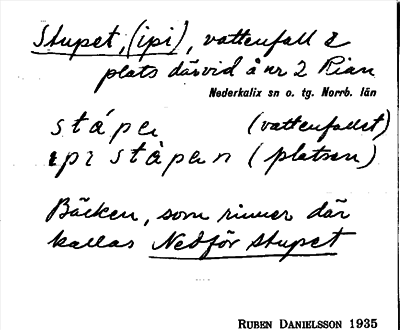 Stupet, (ipi), vattenfall &
plats därvid å nr 2 Rian
Nederkalix sn o. tg. Norrb. län
stápe (vattenfallet)
ipi stàpen (platsen)
Bäcken, som rinner där
kallas Nedför stupet
RUBEN DANIELSSON 1935